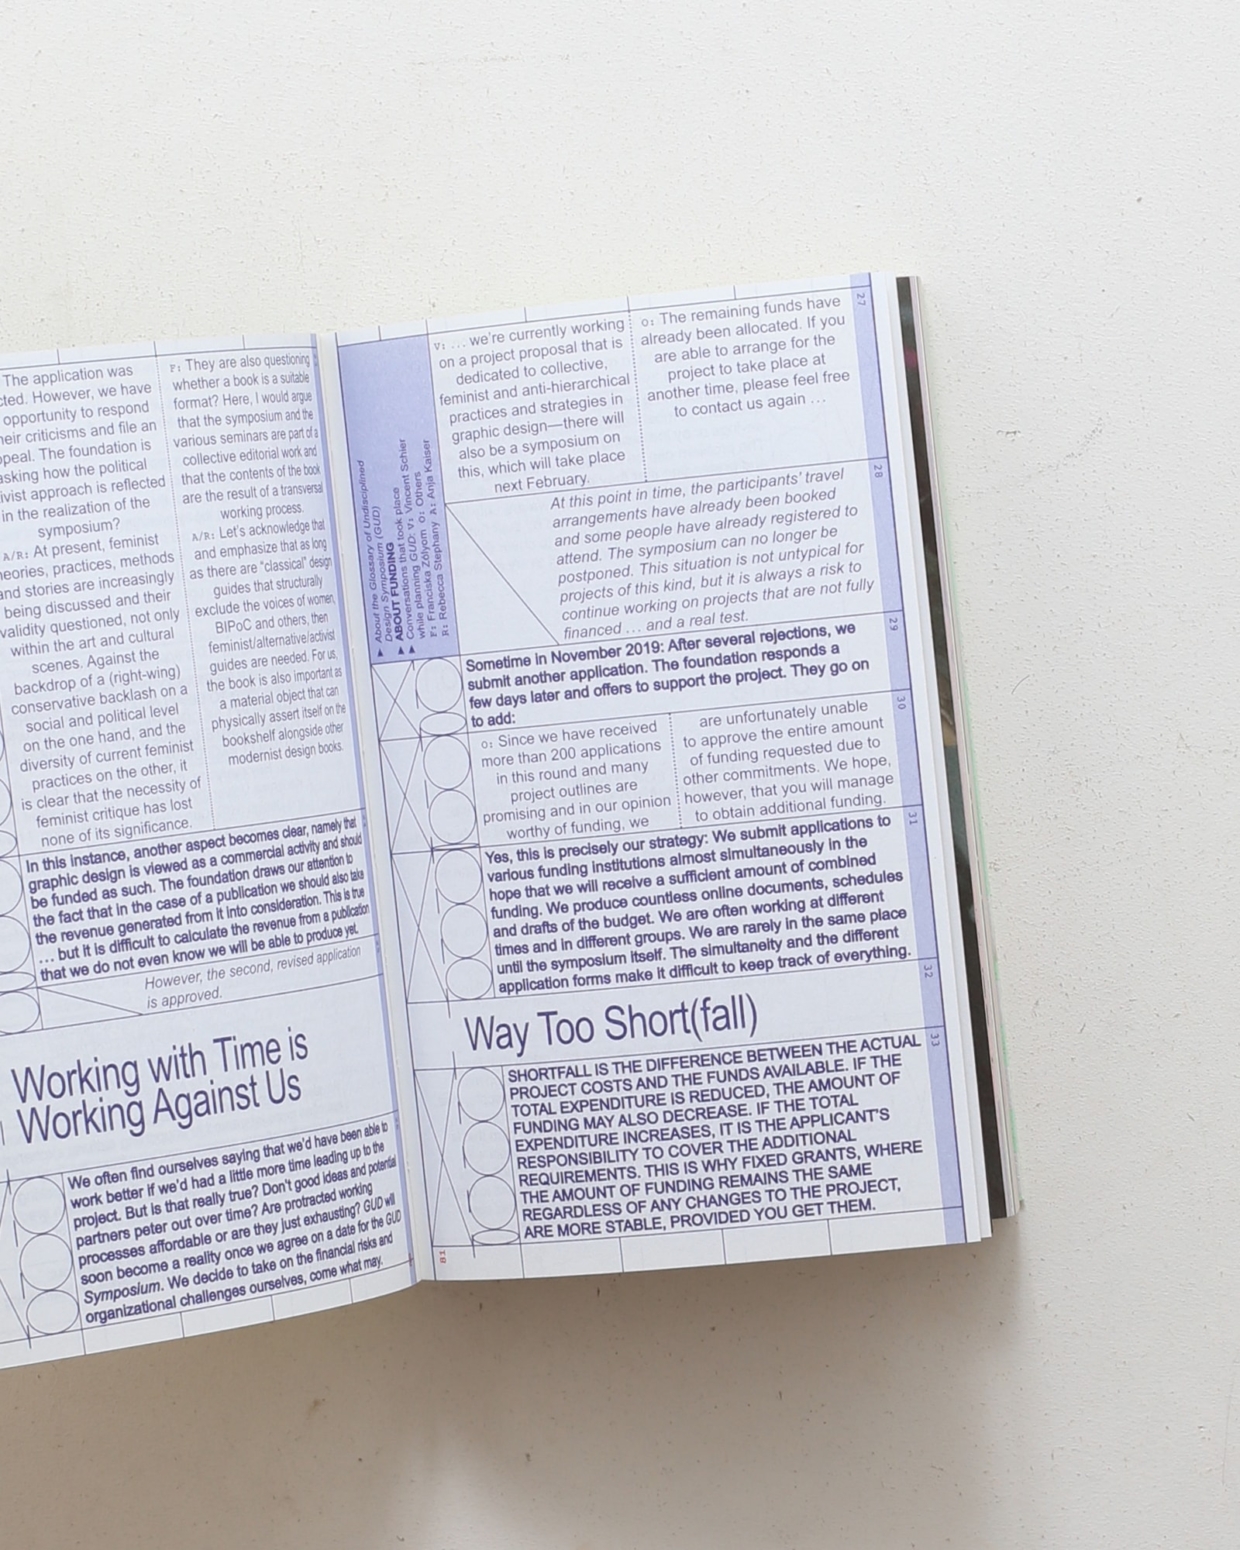 The application was
However, we have
opportunity to respond
their criticisms and file an
The foundation is
asking how the political
approach is reflected
in the realization of the
symposium?
A/R: At present, feminist
theories, practices, methods
and stories are increasingly
being discussed and their
validity questioned, not only
within the art and cultural
scenes. Against the
backdrop of a (right-wing)
conservative backlash on a
social and political level
on the one hand, and the
diversity of current feminist
practices on the other, it
is clear that the necessity of
feminist critique has lost
none of its significance.
F: They are also questioning
whether a book is a suitable
format? Here, I would argue
that the symposium and the
various seminars are part of a
collective editorial work and
that the contents of the book
are the result of a transversal
working process.
A/R: Let's acknowledge that
and emphasize that as long
as there are "classical" design
guides that structurally
exclude the voices of women,
BIPoC and others, then
feminist/alternative/activist
guides are needed. For us,
the book is also important as
a material object that can
physically assert itself on the
bookshelf alongside other
modernist design books.
In this instance, another aspect becomes clear, namely that
graphic design is viewed as a commercial activity and should
be funded as such. The foundation draws our attention to
the fact that in the case of a publication we should also take
the revenue generated from it into consideration. This is true
... but it is difficult to calculate the revenue from a publication
that we do not even know we will be able to produce yet.
However, the second, revised application
is approved.
Working with Time is
Working Against Us
We often find ourselves saying that we'd have been able to
work better if we'd had a little more time leading up to the
project. But is that really true? Don't good ideas and potential
partners peter out over time? Are protracted working
processes affordable or are they just exhausting? GUD will
soon become a reality once we agree on a date for the GUD
Symposium. We decide to take on the financial risks and
organizational challenges ourselves, come what may.
About the Glossary of Undisciplined
Design Symposium (GUD)
ABOUT FUNDING
Conversations that took place
while planning GUD: V: Vincent Schier
F: Franciska Zólyom O: Others
R: Rebecca Stephany A: Anja Kaiser
V: ... we're currently working
on a project proposal that is
dedicated to collective,
feminist and anti-hierarchical
practices and strategies in
graphic design—there will
also be a symposium on
this, which will take place
next February.
O: The remaining funds have
already been allocated. If you
are able to arrange for the
project to take place at
another time, please feel free
to contact us again ...
27
28
At this point in time, the participants' travel
arrangements have already been booked
and some people have already registered to
attend. The symposium can no longer be
postponed. This situation is not untypical for
projects of this kind, but it is always a risk to
continue working on projects that are not fully
financed ... and a real test.
29
Sometime in November 2019: After several rejections, we
submit another application. The foundation responds a
few days later and offers to support the project. They go on
to add:
30
O: Since we have received
more than 200 applications
in this round and many
project outlines are
promising and in our opinion
worthy of funding, we
are unfortunately unable
to approve the entire amount
of funding requested due to
other commitments. We hope,
however, that you will manage
to obtain additional funding.
31
Yes, this is precisely our strategy: We submit applications to
various funding institutions almost simultaneously in the
hope that we will receive a sufficient amount of combined
funding. We produce countless online documents, schedules
and drafts of the budget. We are often working at different
times and in different groups. We are rarely in the same place
until the symposium itself. The simultaneity and the different
application forms make it difficult to keep track of everything.
32
Way Too Short(fall)
33
SHORTFALL IS THE DIFFERENCE BETWEEN THE ACTUAL
PROJECT COSTS AND THE FUNDS AVAILABLE. IF THE
TOTAL EXPENDITURE IS REDUCED, THE AMOUNT OF
FUNDING MAY ALSO DECREASE. IF THE TOTAL
EXPENDITURE INCREASES, IT IS THE APPLICANT'S
RESPONSIBILITY TO COVER THE ADDITIONAL
REQUIREMENTS. THIS IS WHY FIXED GRANTS, WHERE
THE AMOUNT OF FUNDING REMAINS THE SAME
REGARDLESS OF ANY CHANGES TO THE PROJECT,
ARE MORE STABLE, PROVIDED YOU GET THEM.
81